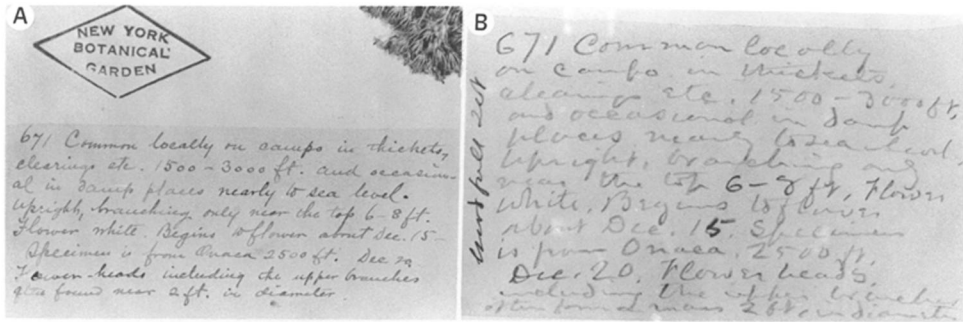 A
NEW YORK
BOTANICAL
GARDEN
671 Common locally on campo in thickets,
clearings etc. 1500-3000 ft. and occasion-
al in damp places nearly to sea level.
Upright, branching only near the top 6-8 ft.
Flower white. Begins to flower about Dec. 15-
Specimen is from Onaca 2500 ft. Dec 20
Flower-heads including the upper branches
found near 2 ft. in diameter.
B
671 Common locally
on campo in thickets,
clearings etc. 1500-3000 ft,
and occasional in damp
places nearly to sea level.
Upright, branching only
near the top 6-8 ft, Flower
white. Begins to flower
about Dec. 15. Specimen
is from Onaca, 2500 ft,
Dec. 20, Flower heads,
including the upper branches
2 ft, in diameter
full set